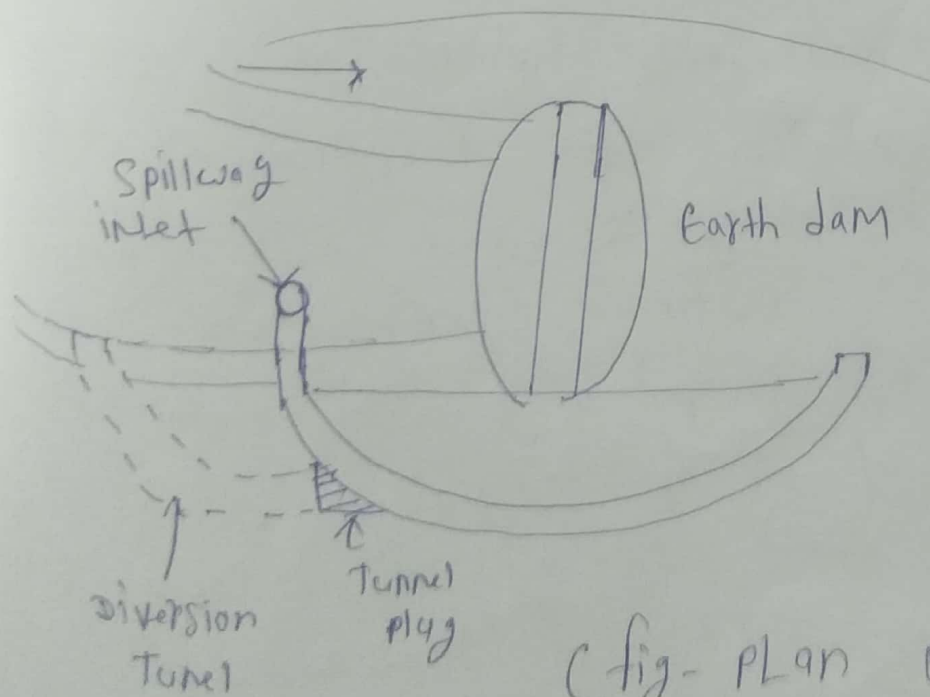 Spillway
inlet
Earth dam
Diversion
Tunel
Tunnel
plug
(fig- PLan (